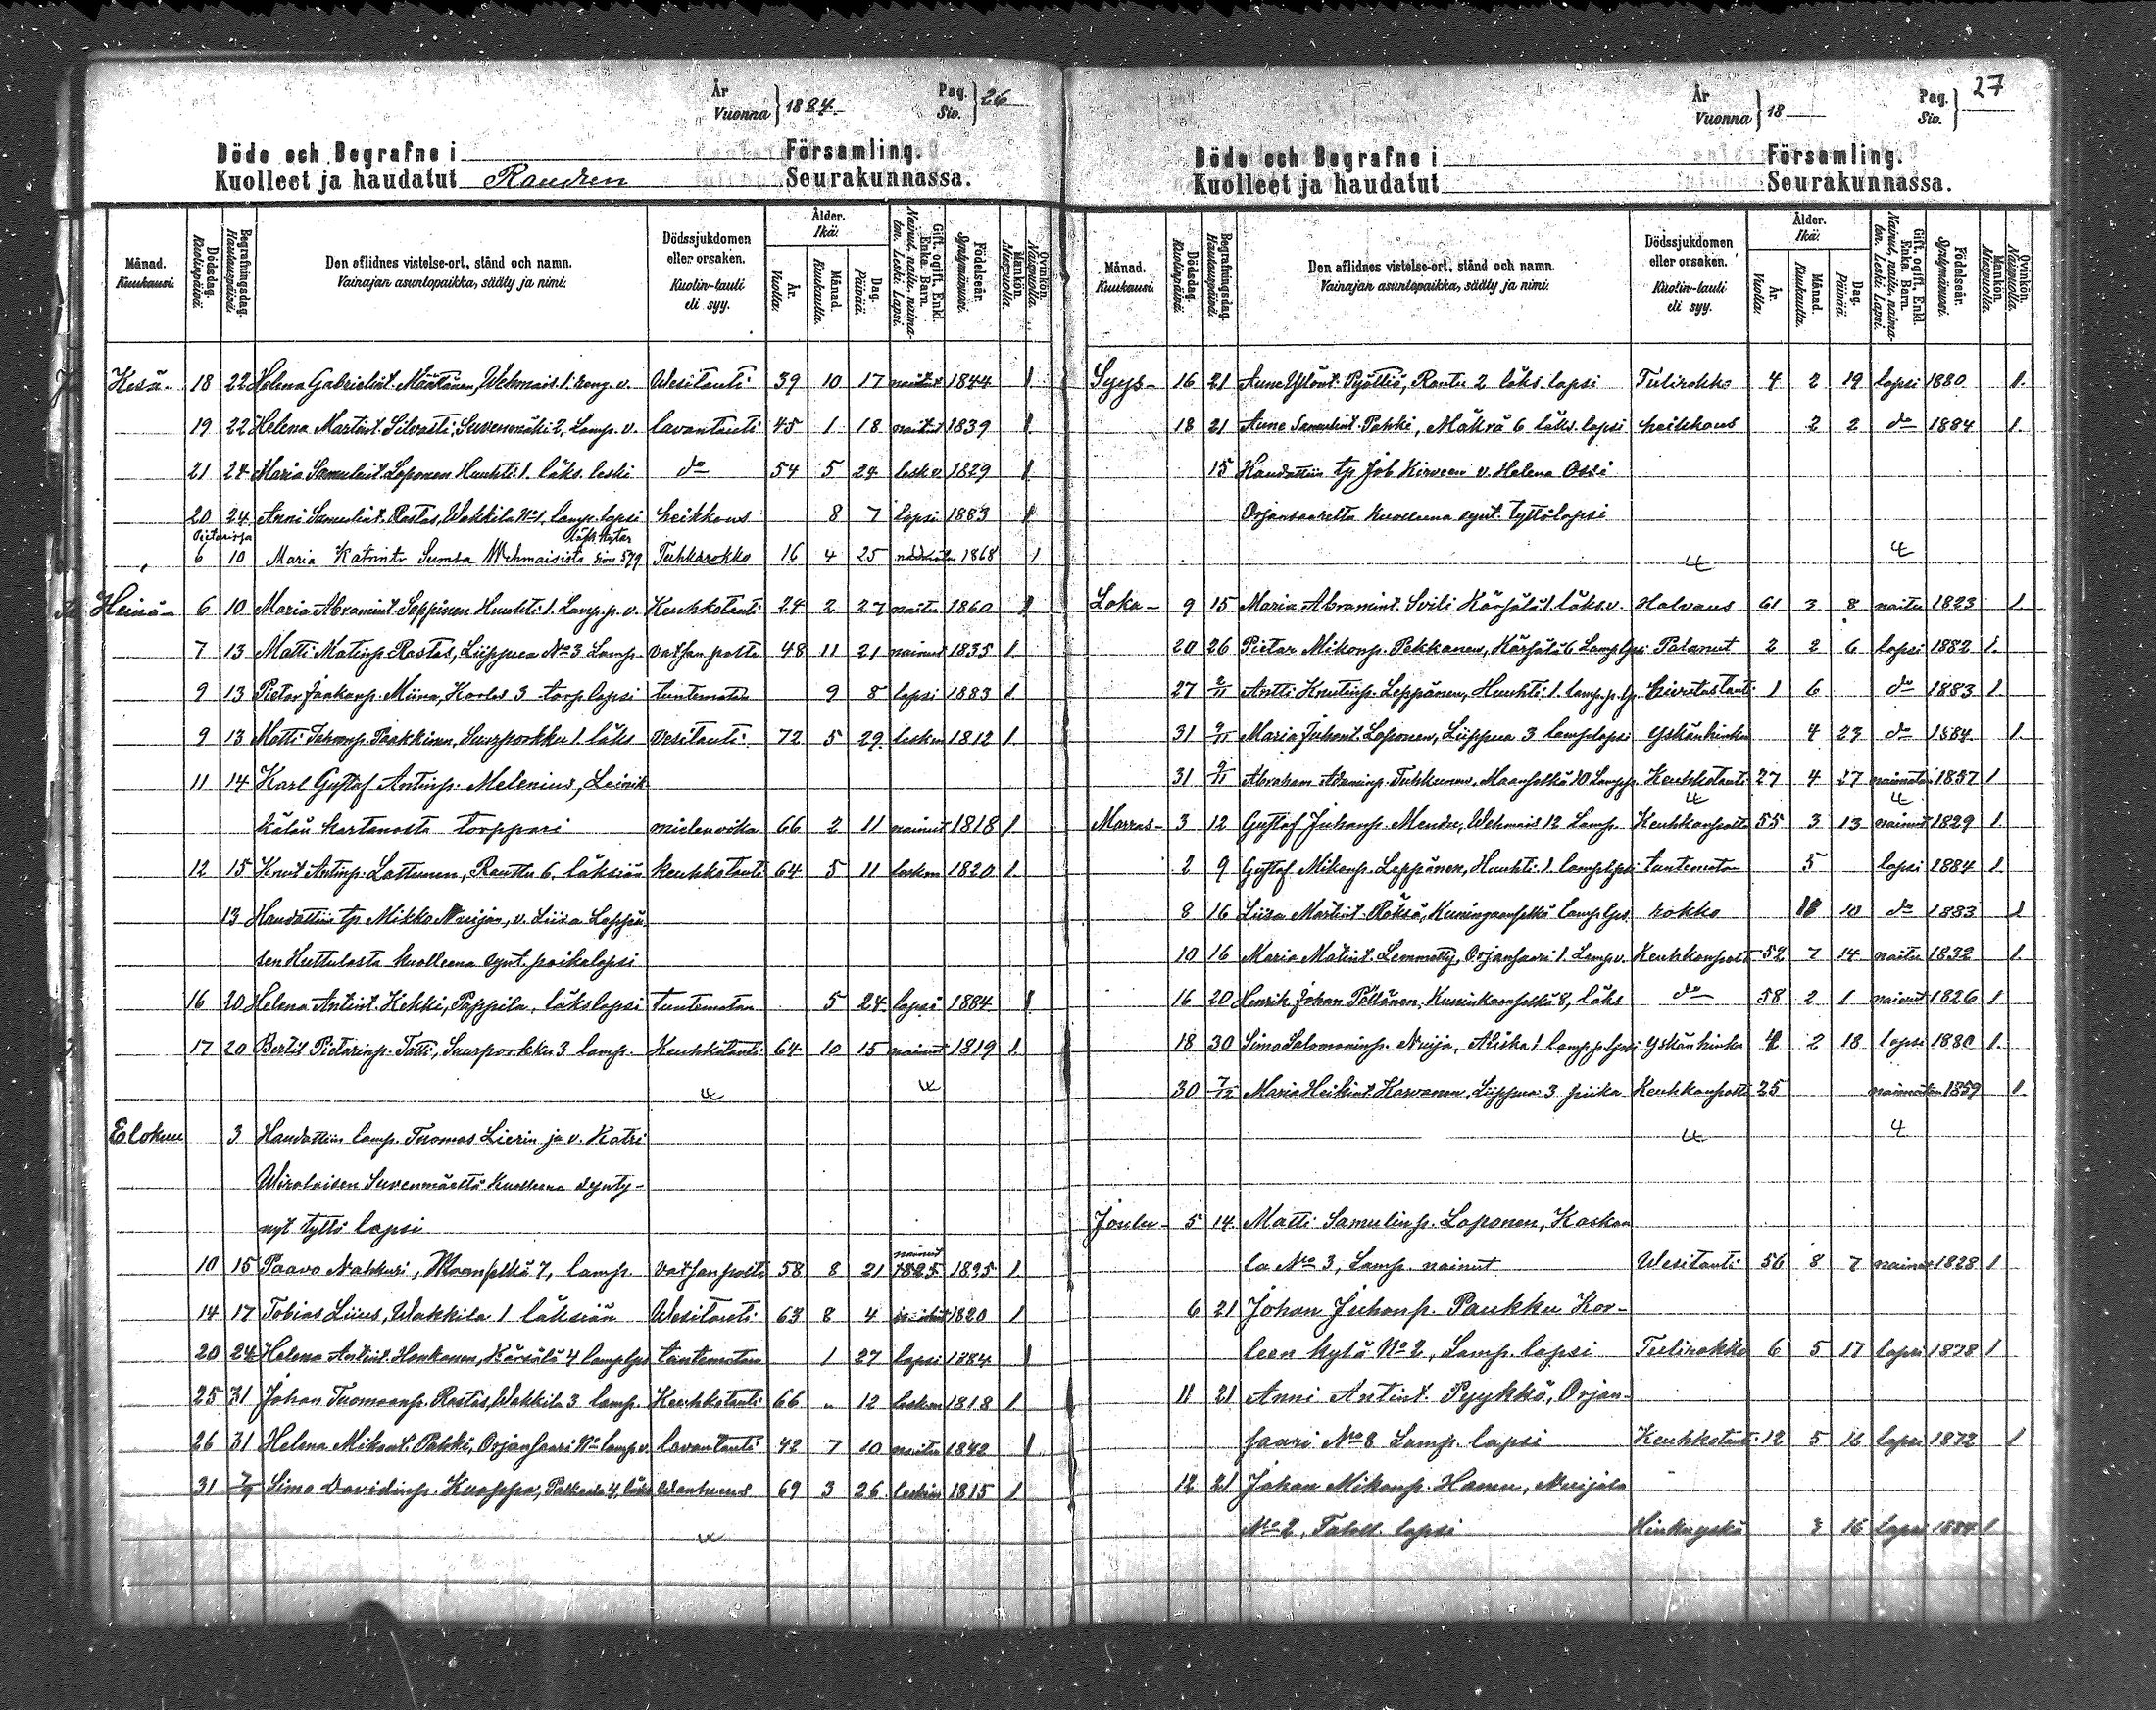 År
Vuonna } 1884
Pag.
Siv. } 26
Döde och Begrafne i Församling.
Kuolleet ja haudatut Raudun Seurakunnassa.
Månad. Kuukausi.
Dödsdag. Kuolinpäivä.
Begrafningsdag. Hautauspäivä.
Den aflidnes vistelse-ort, stånd och namn.
Vainajan asuntopaikka, sääty ja nimi.
Dödssjukdomen eller orsaken.
Kuolin-tauti eli syy.
Ålder. Ikä:
År. Vuotta:
Månad. Kuukautta.
Dag. Päiviä.
Gift, ogift, Enkl. Enka. Barn.
Nainut, naitu, naima-ton. Leski Lapsi.
Födelseår. Syntymävuosi.
Mankön. Miespuolia.
Qvinkön. Naispuolia.
Kesä- 18 22 Helena Gabrielint. Määttänen, Wehmais. 1. reng. v. Wesitauti 39 10 17 naitu 1844 1
19 22 Helena Martint. Silvasti, Suvenmäki 2, Lamp. v. lavantauti 45 1 18 naitu 1839 1
21 24 Maria Samulint. Loponen Huuhti 1. läks. leski do 54 5 24 leski 1829 1
20 24 Anni Samulint. Rastas, Wakkila No 1, lamp. lapsi heikkous 8 7 lapsi 1883 1
6 10 Maria Katrint. Sumsa Wehmaisista siv. 579 Tuhkarokko 16 4 25 1868 1
Heinä- 6 10 Maria Abramint. Seppinen Huuhti 1. Lamp. p. v. Keuhkotauti 24 2 27 naitu 1860 1
7 13 Matti Matinp. Rastas, Liippua No 3 Lamp. vatsan polte 48 11 21 nainut 1835 1
9 13 Pietar Jaakonp. Miina, Korlee 3 torp. lapsi tuntematon 9 8 lapsi 1883 1
9 13 Matti Tahvonp. Paakkinen, Suurporkku 1. läks vesitauti 72 5 29 leskim 1812 1
11 14 Karl Gustaf Antinp. Melenius, Leinik-
kälän kartanosta torppari mielenvika 66 2 11 nainut 1818 1
12 15 Knut Antinp. Lattunen, Rautu 6. läksiän keuhkotauti 64 5 11 leskim 1820 1
13 Haudattiin tp Mikko Nuijan, v. Liisa Leppä-
sen Huttulasta kuolleena synt. poikalapsi
16 20 Helena Antint. Kekki, Pappila, läkslapsi tuntematon 5 24 lapsi 1884 1
17 20 Bertil Pietarinp. Tatti, Suurporkku 3 lamp. Keuhkotauti 64 10 15 nainut 1819 1
Elokuu 3 Haudattiin lamp. Tuomas Lierin ja v. Katri
Wirolaisen Suvenmäeltä kuolleena synty-
nyt tyttö lapsi
10 15 Paavo Nakkuri, Maanselkä 7, lamp. vatsanpolte 58 8 21 nainut 1825 1825 1
14 17 Tobias Liius, Wakkila 1 läksiän Wesitauti 63 8 4 1820 1
20 24 Helena Antint. Honkanen, Kärsälä 4 lamplps tuntematon 1 27 lapsi 1884 1
25 31 Johan Tuomaanp. Rastas, Wakkila 3 lamp. Keuhkotauti 66 " 12 leskim 1818 1
26 31 Helena Mikont. Pahki, Orjansaari No lamp. v. lavantauti 42 7 10 naitu 1842 1
31 7/9 Simo Davidinp. Kuoppa, 4, läks Wanhuus 69 3 26 leskim 1815 1
År
Vuonna } 18
Pag.
Siv. } 27
Döde och Begrafne i Församling.
Kuolleet ja haudatut Seurakunnassa.
Månad. Kuukausi.
Dödsdag. Kuolinpäivä.
Begrafningsdag. Hautauspäivä.
Den aflidnes vistelse-ort, stånd och namn.
Vainajan asuntopaikka, sääty ja nimi.
Dödssjukdomen eller orsaken.
Kuolin-tauti eli syy.
Ålder. Ikä:
År. Vuotta:
Månad. Kuukautta.
Dag. Päiviä.
Gift, ogift, Enkl. Enka. Barn.
Nainut, naitu, naima-ton. Leski Lapsi.
Födelseår. Syntymävuosi.
Mankön. Miespuolia.
Qvinkön. Naispuolia.
Syys- 16 21 Anne Pyöttiö, Rautu 2 läks. lapsi Tulirokko 4 2 19 lapsi 1880 1
18 21 Anne Samulint. Pahki, Mäkrä 6 läks. lapsi heikkous 2 2 do 1884 1
15 Haudattiin tp Job Kirveen v. Helena Ossi
Orjansaarelta kuolleena synt. tyttölapsi
Loka- 9 15 Maria Abramint. Svili Kärsälä 1. läks. v. Halvaus 61 3 8 naitu 1823 1
20 26 Pietar Mikonp. Pekkanen, Kärsälä 6 Lamp lpsi Palanut 2 2 6 lapsi 1882 1
27 2/11 Antti Knutinp. Leppänen, Huuhti 1. lamp. p. lp. kuristustauti 1 6 do 1883 1
31 9/11 Maria Juhont. Loponen, Liippua 3 lamplapsi Yskänhinku 4 23 do 1884 1
31 9/11 Abraham Adaminp. Tuhkunen, Maanselkä 10 Lamp p. Keuhkotauti 27 4 27 naimaton 1857 1
Marras- 3 12 Gustaf Juhonp. Mendu, Wehmais 12 Lamp. Keuhkonpolte 55 3 13 nainut 1829 1
2 9 Gustaf Mikonp. Leppänen, Huuhti 1 lamplpsi tuntematon 5 lapsi 1884 1
8 16 Liisa Martint. Räksä, Kuningaanselkä lamplps. rokko 11 10 do 1883 1
10 16 Maria Matint. Lemmetty, Orjansaari 1. Lamp v. Keuhkonpolt 52 7 14 naitu 1832 1
16 20 Henrik Johan Pöllänen, Kuninkaanselkä 8, läks do 58 2 1 nainut 1826 1
18 30 Simo Salomoninp. Nuija, Aliska 1 lamp p. lpsi Yskän hinku 4 2 18 lapsi 1880 1
30 7/12 Maria Heikint. Karvanen, Liippua 3 piika Keuhkonpolte 25 naimaton 1859 1
Joulu- 5 14 Matti Samulinp. Loponen, Kaskaa
la No 3, Lamp. nainut Wesitauti 56 8 7 nainut 1828 1
6 21 Johan Juhonp. Paukku Kor-
leen kylä No 2, Lamp. lapsi Tulirokko 6 5 17 lapsi 1878 1
11 21 Anni Antint. Pyykkö, Orjan-
saari No 8 Lamp. lapsi Keuhkotauti 12 5 16 lapsi 1872 1
12 21 Johan Mikonp. Hannu, Nuijala
No 2, Taloll. lapsi Hinkuyskä 3 16 lapsi 1884 1